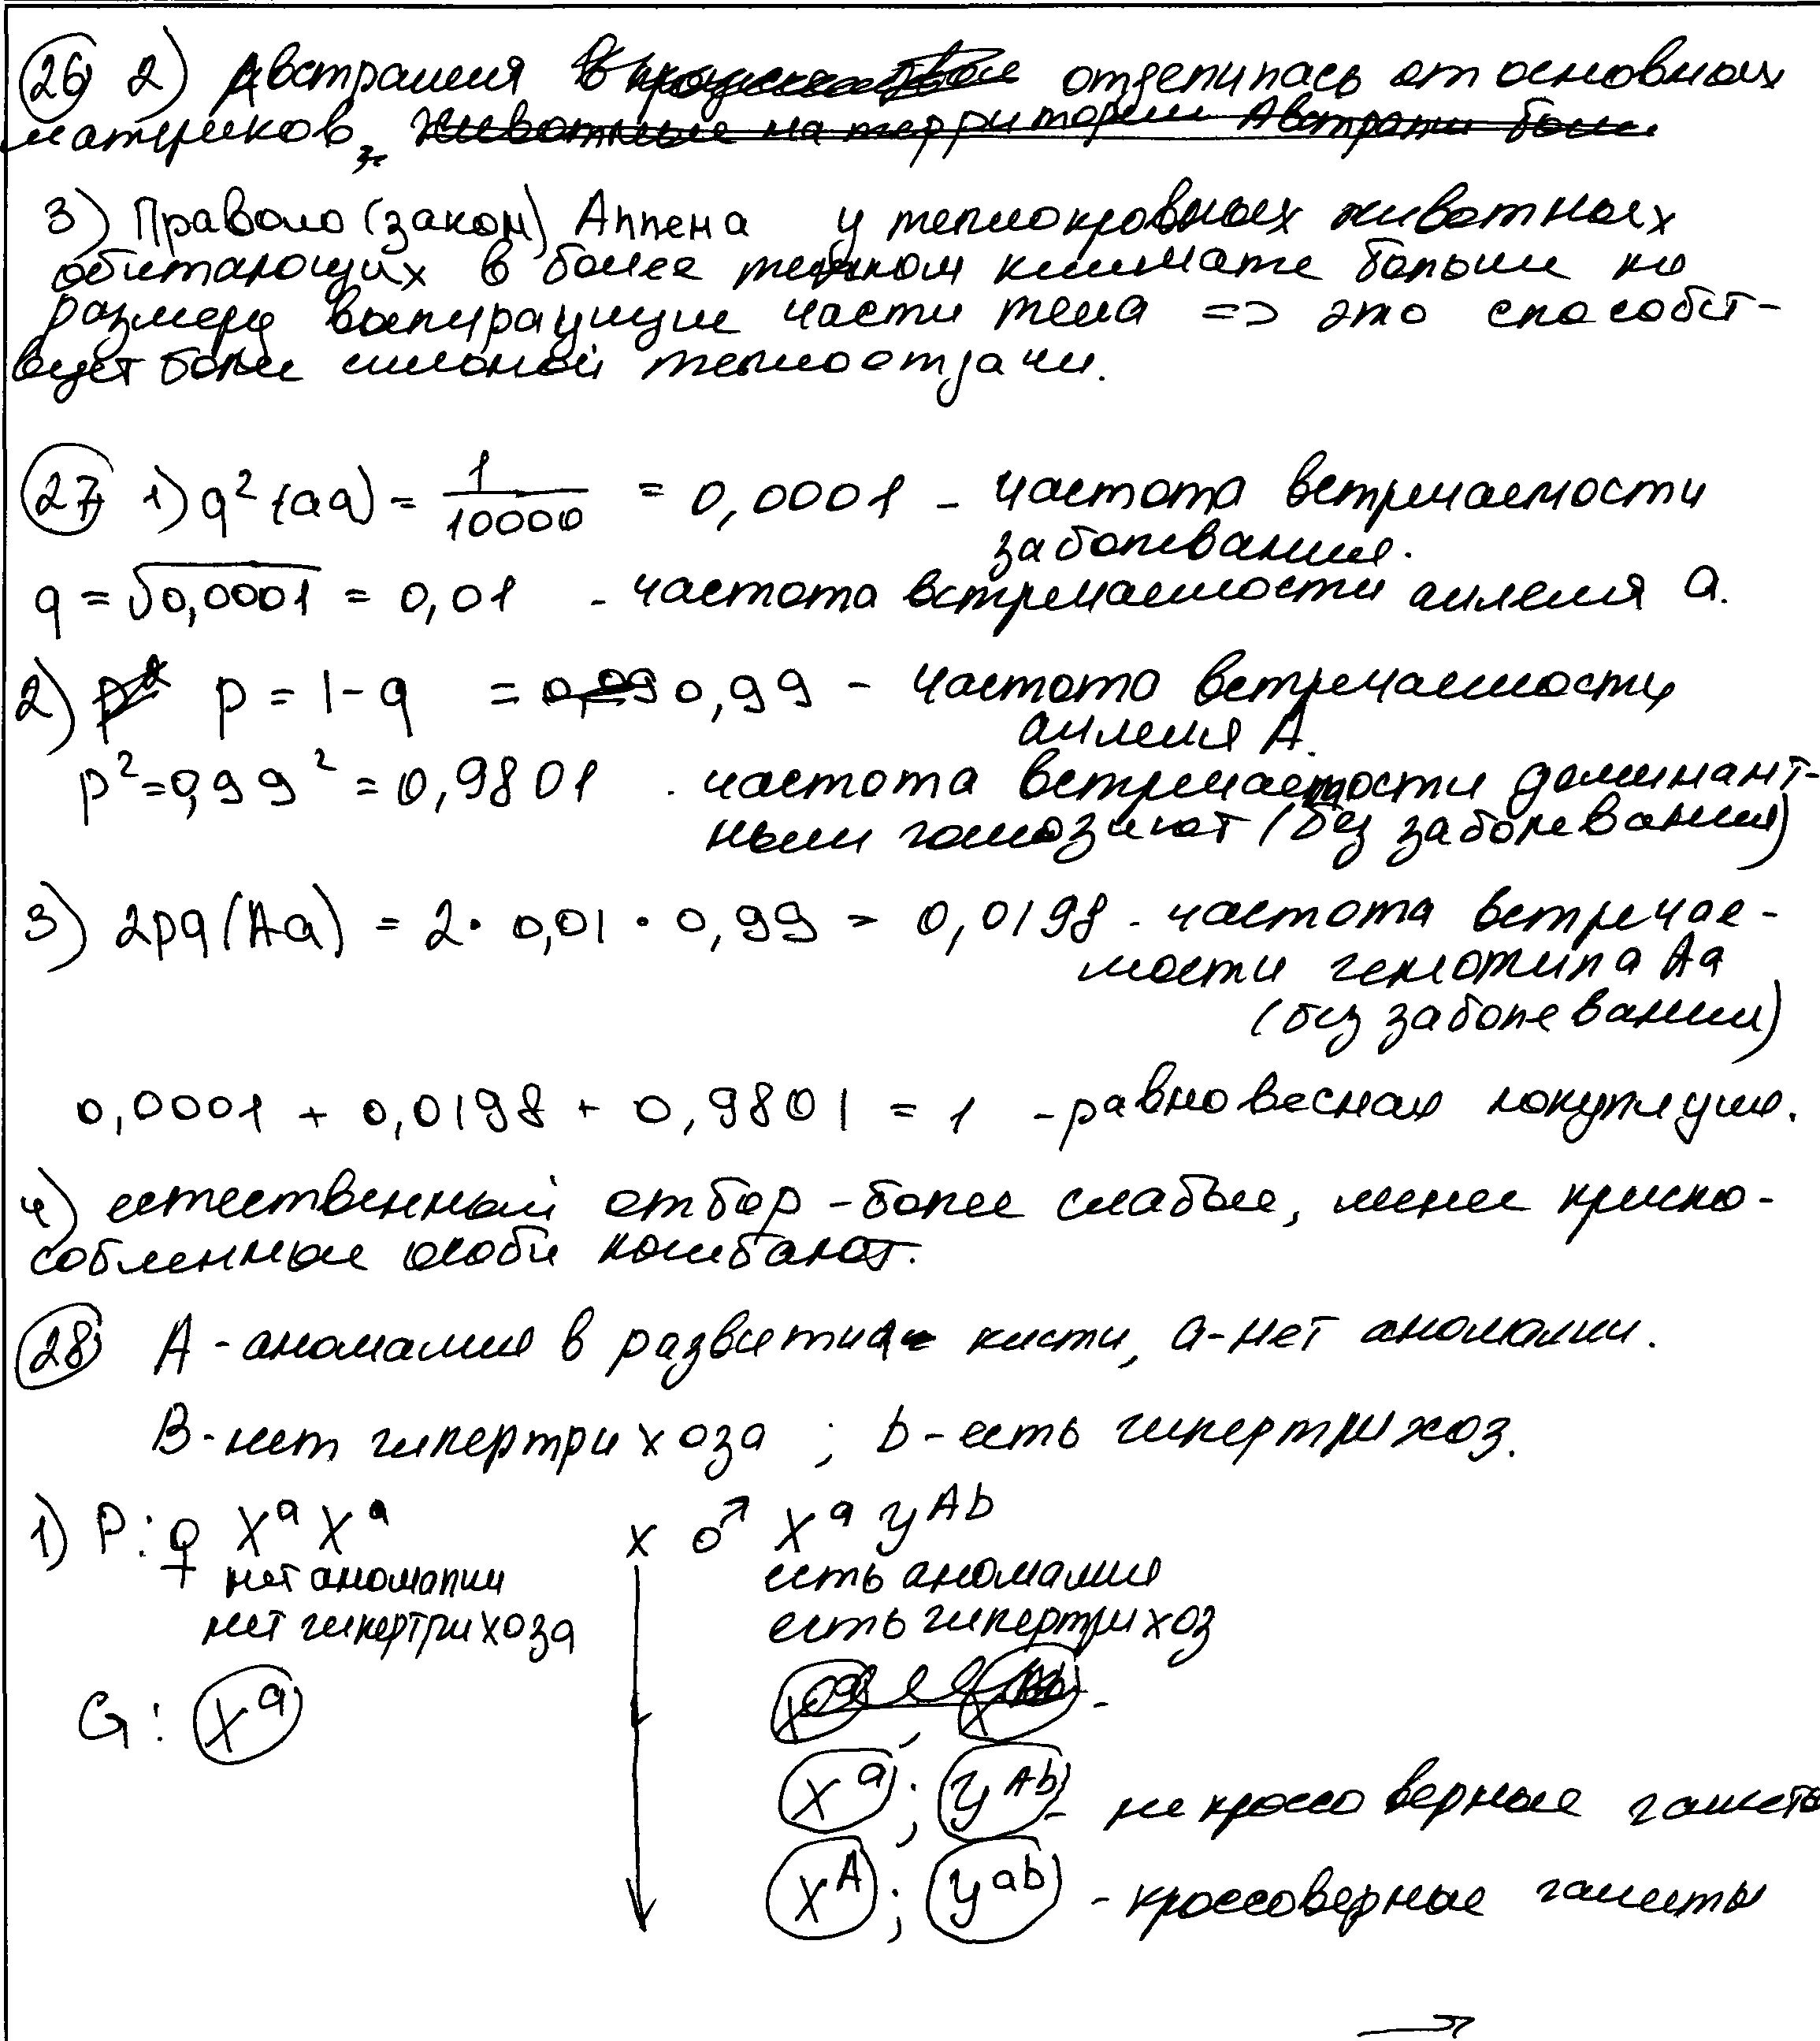 26 2) Австралия отделилась от основных
материков,
3) Правило (закон) Аллена у теплокровных животных
обитающих в более теплом климате больши по
размеру выпирающие части тела => это способст-
вует более сильной теплоотдачи.
27 1) q² (aa) = 1/10000 = 0,0001 - частота встречаемости
заболевания.
q = √0,0001 = 0,01 - частота встречаемости аллеля a.
2) p = 1-q = 0,99 - частота встречаемости
аллеля A.
p² = 0,99² = 0,9801 - частота встречаемости доминант-
ными гомозигот (без заболевания)
3) 2pq (Aa) = 2 · 0,01 · 0,99 = 0,0198 - частота встречае-
мости генотипа Aa
(без заболевании)
0,0001 + 0,0198 + 0,9801 = 1 - равновесная популяция.
4) естественный отбор - более слабые, менее приспо-
собленные особи погибают.
28 A - аномалия в развитии кисти, a - нет аномалии.
B - нет гипертрихоза ; b - есть гипертрихоз.
1) P: ♀ Xᵃ Xᵃ x ♂ Xᵃ Yᴬᵇ
нет аномалии есть аномалия
нет гипертрихоза есть гипертрихоз
G: Xᵃ
Xᵃ ; Yᴬᵇ - некроссоверные гаметы
Xᴬ ; Yᵃᵇ - кроссоверные гаметы
→